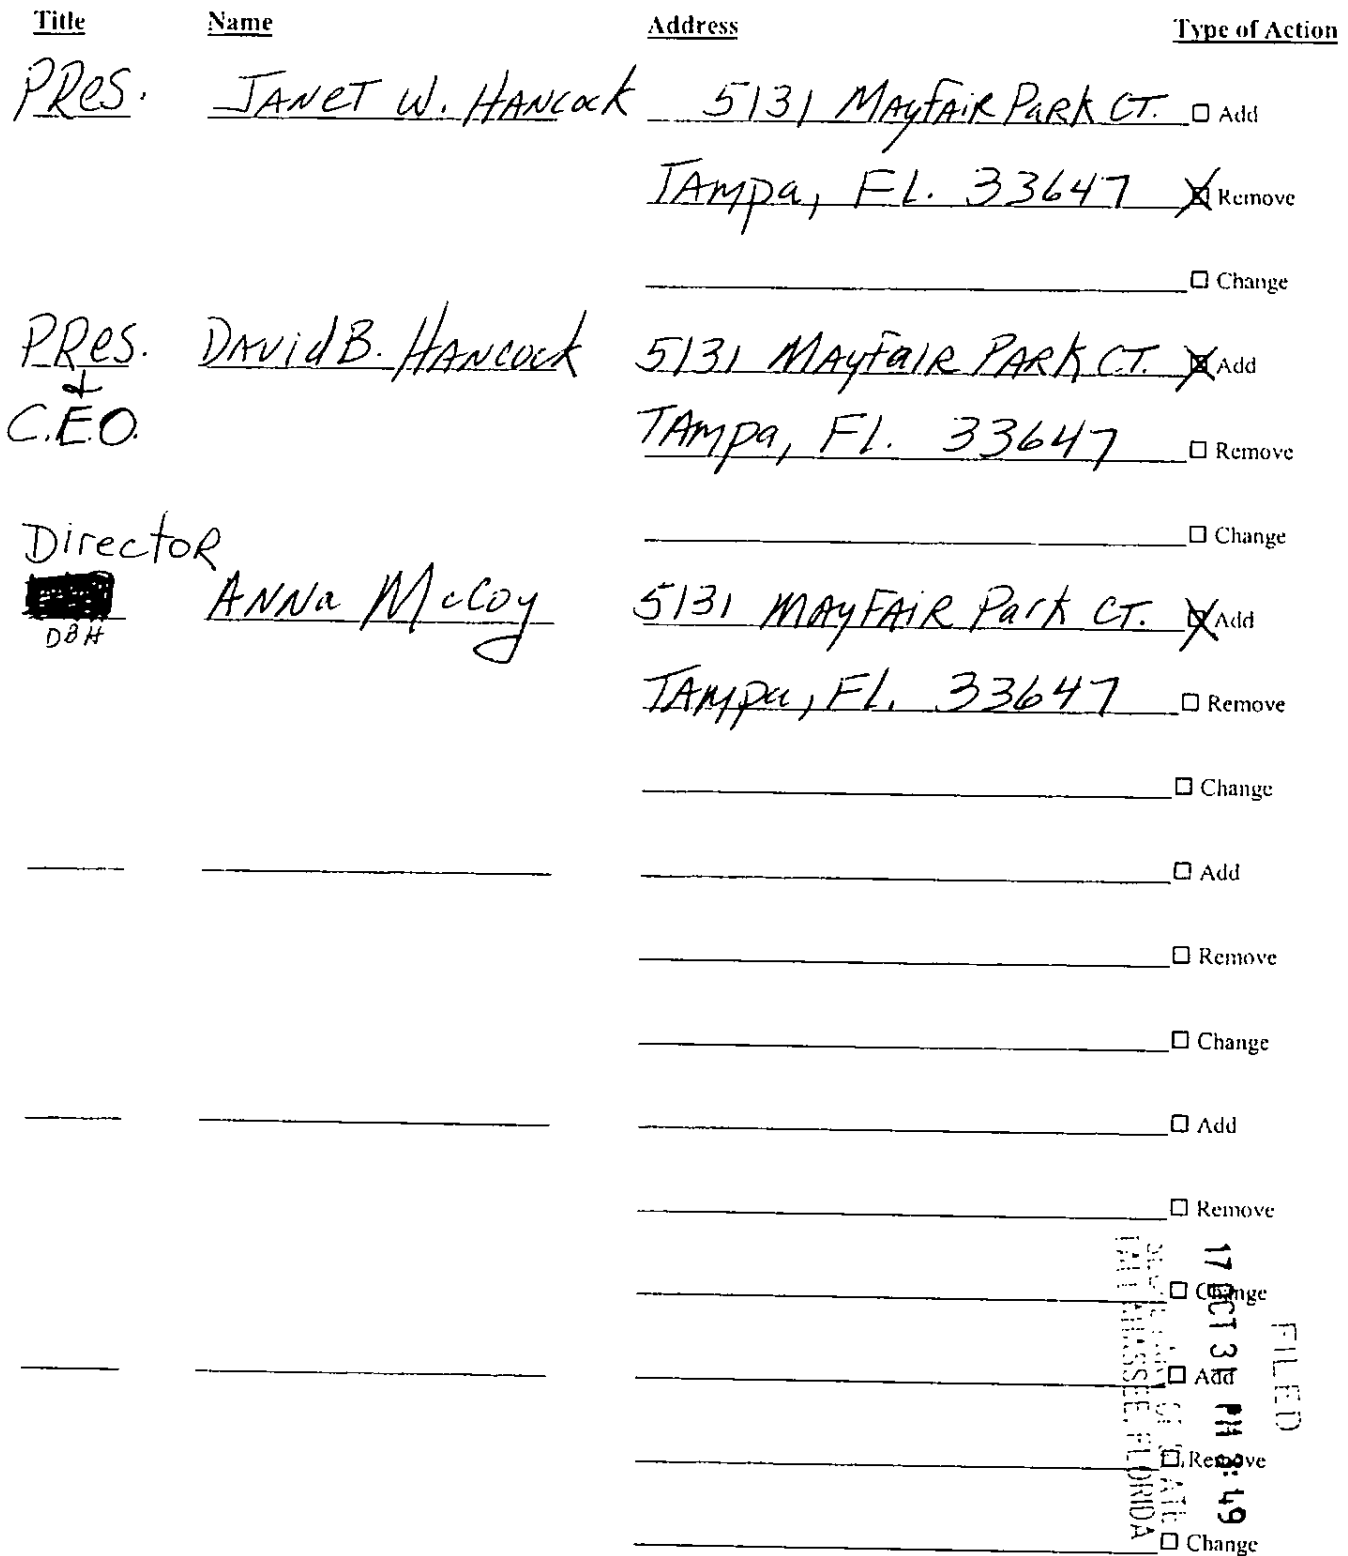 Title Name Address Type of Action
PRes. JANET W. HANCOCK 5131 MAYFAIR PARK CT. Add
TAmpa, FL. 33647 Remove
Change
PRes. DAVID B. HANCOCK 5131 MAYFAIR PARK CT. Add
&
C.E.O.
TAmpa, FL. 33647 Remove
Change
Director
ANNA McCoy 5131 MAYFAIR Park CT. Add
DBH
TAmpa, FL. 33647 Remove
Change
Add
Remove
Change
Add
Remove
Change
Add
Remove
Change
FILED
17 OCT 31 PM 3:49
TALLAHASSEE, FLORIDA